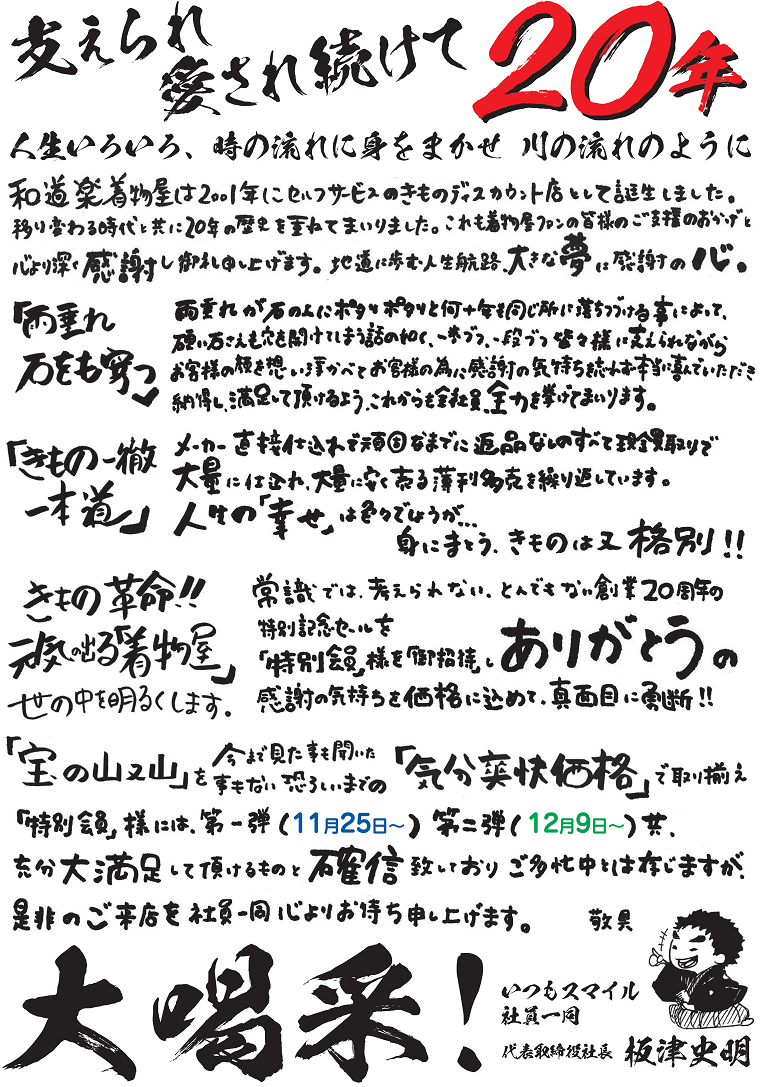 支えられ
愛され続けて
20年
人生いろいろ、時の流れに身をまかせ 川の流れのように
和道楽着物屋は2001年にセルフサービスのきものディスカウント店として誕生しました。
移り変わる時代と共に20年の歴史を重ねてまいりました。これも着物屋ファンの皆様のご支援のおかげと
心より深く感謝し御礼申し上げます。地道に歩む人生航路、大きな夢に感謝の心。
「雨垂れ
石をも穿つ」
雨垂れが石の上にポタリポタリと何十年も同じ所に落ちつづける事によって、
硬い石さんも穴を開けてしまう話の如く、一歩づつ、一段づつ皆々様に支えられながら
お客様の顔を想い浮かべてお客様の為に感謝の気持ちを忘れず本当に喜んでいただき
納得し、満足して頂けるよう、これからも全社員、全力を挙げてまいります。
「きもの一徹
一本道」
メーカー直接仕入れで頑固なまでに返品なしのすべて現金買取りで
大量に仕入れ、大量に安く売る薄利多売を繰り返しています。
人生の「幸せ」は色々でしょうが…
身にまとう、きものは又格別!!
きもの革命!!
元気の出る「着物屋」
世の中を明るくします。
常識では、考えられない、とんでもない創業20周年の
特別記念セールを
「特別会員」様を「御招待」し
ありがとうの
感謝の気持ちを価格に込めて、真面目に勇断!!
「宝の山又山」を
今まで見た事も聞いた
事もない恐ろしいまでの
「気分爽快価格」で取り揃え
「特別会員」様には、第一弾(11月25日～)第二弾(12月9日～)共、
充分大満足して頂けるものと確信致しておりご多忙中とは存じますが、
是非のご来店を社員一同心よりお待ち申し上げます。 敬具
大喝采!
いつもスマイル
社員一同
代表取締役社長 板津史明